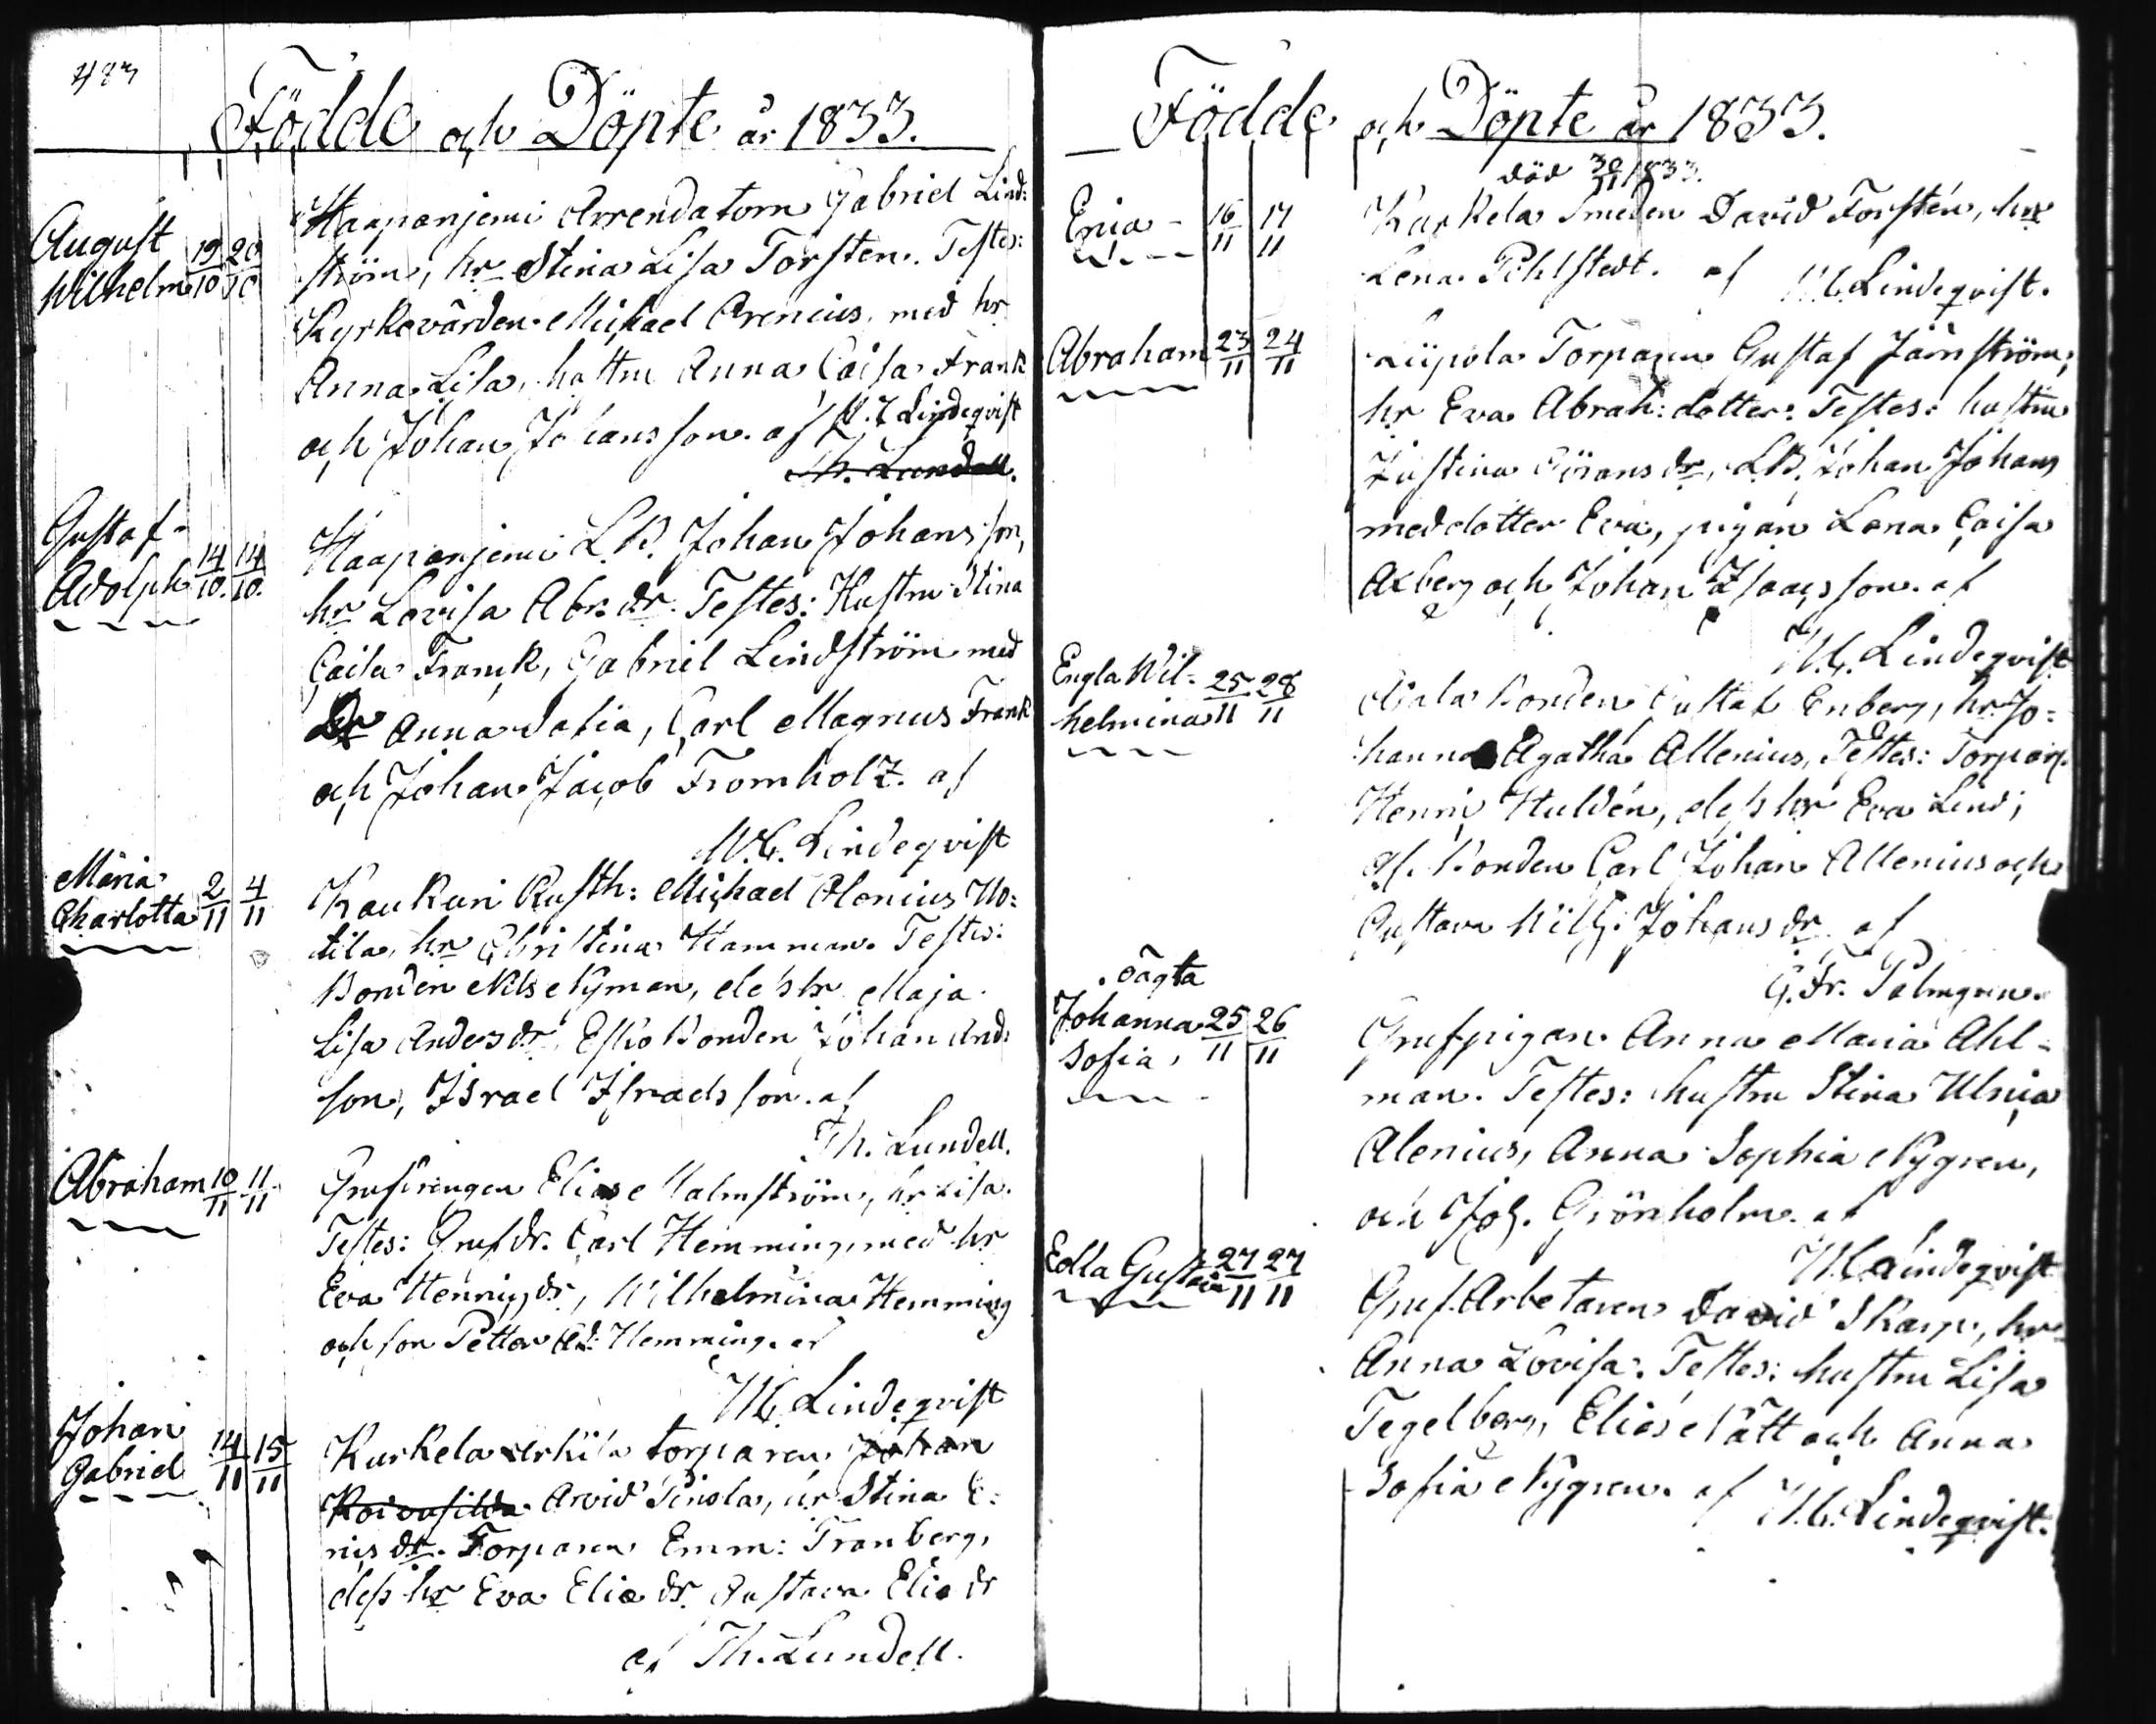 483
Födde och Döpte år 1833.
August
Wilhelm 19/10 20/10
Haapanjemi Arrendatorn Gabriel Lind:
ström, hr Stina Lisa Torsten. Testes:
Kyrkovärden Michael Arenius, med hr
Anna Lisa, hustru Anna Caisa Frank
och Johan Johansson. af M.C. Lindeqvist
Th. Lundell.
Gustaf
Adolph 14/10. 14/10.
Haapanjemi L.B. Johan Johansson,
hr Lovisa Abr: dr. Testes: Hustru Stina
Caisa Franck, Gabriel Lindström med
Dr Anna Sofia, Carl Magnus Frank
och Johan Jacob Fromholz. af
M.C. Lindeqvist
Maria
Charlotta 2/11 4/11
Kaukuri Rusth: Michael Alenius Uo:
tila, hr Christina Hamman. Testes:
Bonden Nils Nyman, dess hr Maja
Lisa Anders dr, Esko Bonden Johan And:
son, Israel Israelsson. af
Th. Lundell.
Abraham 10/11 11/11
Grufdrengen Elias Malmström, hr Lisa.
Testes: Grufdr. Carl Hemming, med hr
Eva Henriz dr, Wilhelmina Hemming
och son Petter Ad: Hemming. af
M.C. Lindeqvist
Johan
Gabriel 14/11 15/11
Kurkela Erkilä torparen Johan
Koivusilda Arvid Sinola, hr Stina E:
ris dr. Torparen Emm: Tranberg,
dess hr Eva Elia dr. Gustava Elia dr
af Th. Lundell.
Födde och Döpte år 1833.
död 30/11 1833.
Erica 16/11 17/11
Kurkela Smeden David Forstén, hr
Lena Pihlstedt. af M.C. Lindeqvist.
Abraham 23/11 24/11
Liipola Torparen Gustaf Järnström,
hr Eva Abrah: dotter. Testes: hustru
Justina Görans dr, L.B. Johan Johans
med dotter Eva, pigan Lena Caisa
Axberg och Johan Isaacsson. af
M.C. Lindeqvist
Engla Wil-
helmina 25/11 28/11
Bonden Gustaf Enberg, hr Jo:
hanna Agatha Allenius, Testes: Torpar.
Henric Huldén, dess hr Eva Lind;
Bonden Carl Johan Allenius och
Gustava Wilh. Johans dr. af
G. Fr. Palmgren.
oägta
Johanna
Sofia, 25/11 26/11
Grufpigan Anna Maria Ahl-
man. Testes: hustru Stina Ulrica
Alenius, Anna Sophia Nygren,
och Joh. Grönholm. af
M.C. Lindeqvist
Edla Gustava 27/11 27/11
Gruf Arbetaren David Skarp, hr
Anna Lovisa. Testes: hustru Lisa
Tegelberg, Elias Nätt och Anna
Sofia Nygren. af M.C. Lindeqvist.